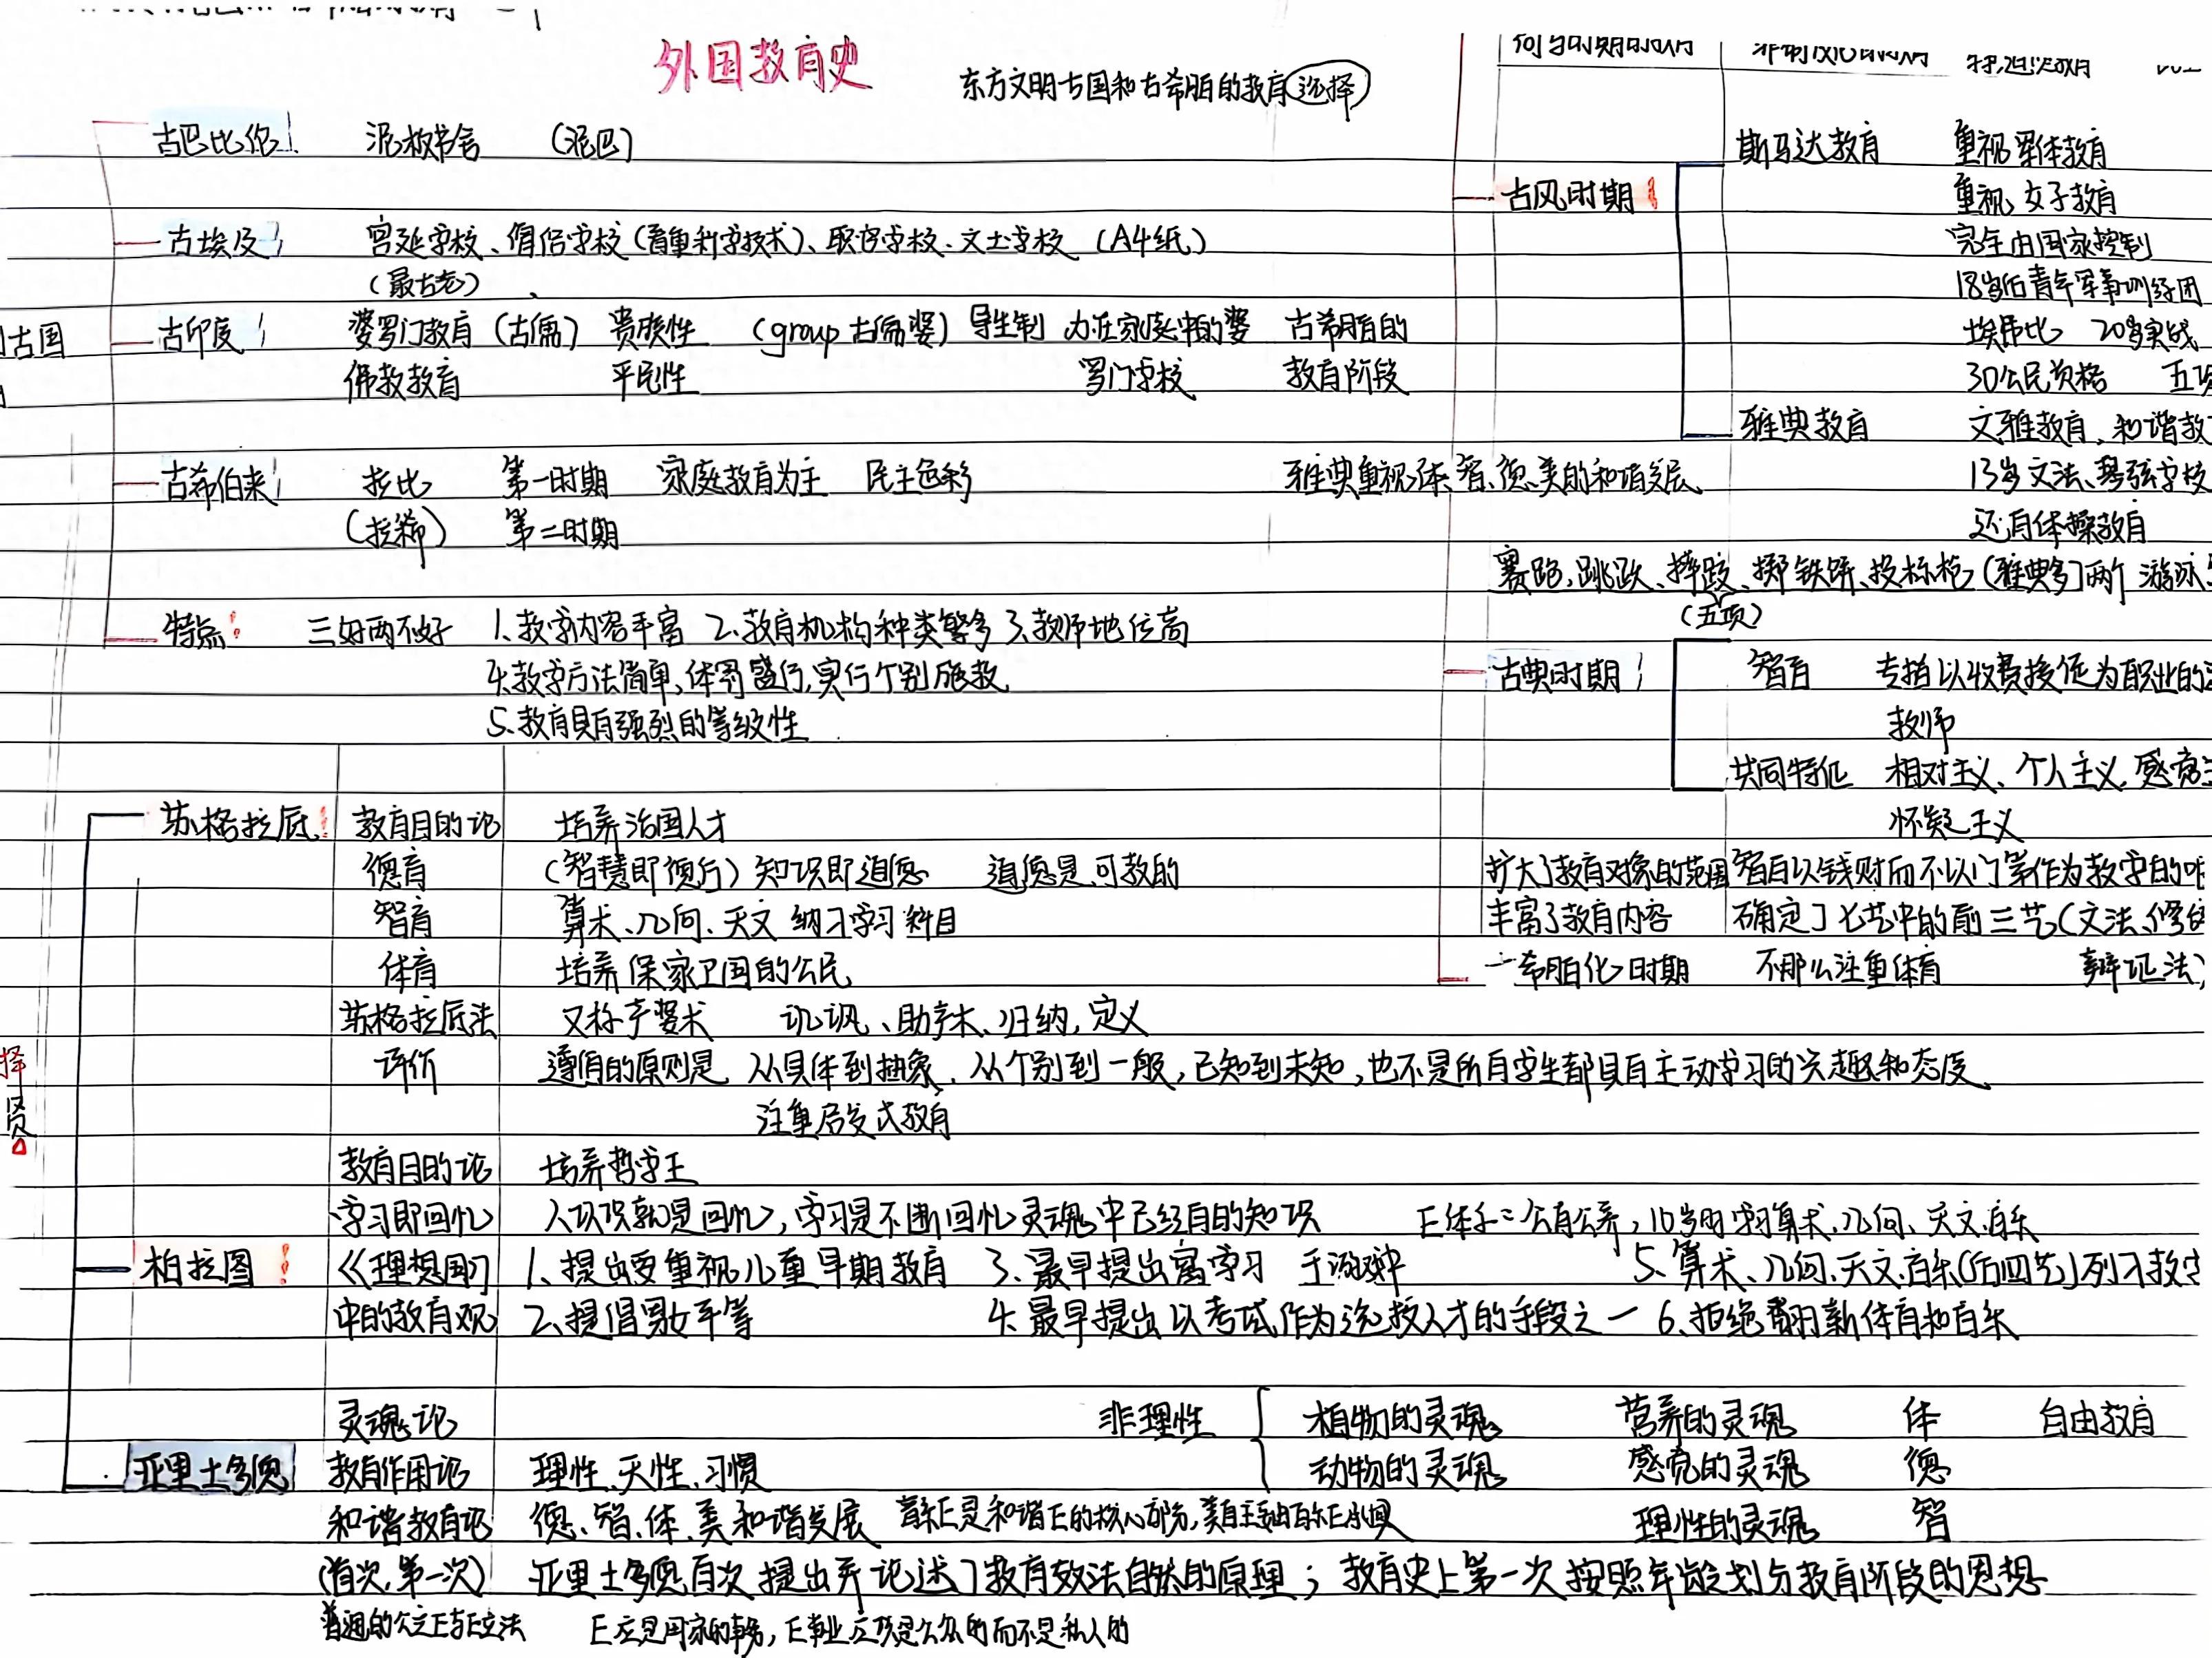 外国教育史
东方文明古国和古希腊的教育 选择
古巴比伦 泥板书舍 (泥巴)
古埃及 宫廷学校、僧侣学校(着重科学技术)、职官学校、文士学校 (A4纸)
(最古老)
古国
古印度 婆罗门教育 (古儒) 贵族性 (group古儒婆) 导生制 办在家庭中的婆
佛教教育 平民性 罗门学校
古希伯来 拉比 第一时期 家庭教育为主 民主色彩
(拉稀) 第二时期
特点 三好两不好 1、教学内容丰富 2、教育机构种类繁多 3、教师地位高
4、教学方法简单,体罚盛行,实行个别施教
5、教育具有强烈的等级性
古希腊的
教育阶段
古风时期
斯马达教育 重视军体教育
重视女子教育
完全由国家控制
18岁后青年军事训练团
埃弗比 20岁实战
30公民资格 五项
雅典教育 文雅教育、和谐教
雅典重视体、智、德、美的和谐发展
13岁文法、琴弦学校
还有体操教育
赛跑,跳跃、摔跤、掷铁饼、投标枪 (雅典多两个 游泳
(五项)
古典时期 智者 专指以收费授徒为职业的
教师
共同特征 相对主义、个人主义、感觉主
怀疑主义
扩大了教育对象的范围 智者以钱财而不以门第作为教学的唯
丰富了教育内容 确定了七艺中的前三艺(文法、修辞
希腊化时期 不那么注重体育 辩证法)
择
苏格拉底 教育目的论 培养治国人才
德育 (智慧即德行) 知识即道德 道德是可教的
智育 算术、几何、天文 纳入学习科目
体育 培养保家卫国的公民
苏格拉底法 又称产婆术 讥讽、助产术、归纳,定义
评价 遵循的原则是 从具体到抽象、从个别到一般,已知到未知,也不是所有学生都具有主动学习的兴趣和态度
注重启发式教育
柏拉图
教育目的论 培养哲学王
学习即回忆 人认识就是回忆,学习是不断回忆灵魂中已经有的知识 公有公养,10岁时学习算术、几何、天文、音乐
《理想国》 1、提出要重视儿童早期教育 3、最早提出寓学习于游戏中 5、算术、几何、天文、音乐(后四艺)列入教学
中的教育观 2、提倡男女平等 4、最早提出以考试作为选拔人才的手段之一 6、拒绝翻新体育和音乐
亚里士多德
灵魂论 非理性 { 植物的灵魂 营养的灵魂 体 自由教育
教育作用论 理性、天性、习惯 动物的灵魂 感觉的灵魂 德
和谐教育论 德、智、体、美和谐发展 音乐E是和谐E的核心部分,美育主要由音乐E承担 理性的灵魂 智
(首次,第一次) 亚里士多德首次提出并论述了教育效法自然的原理;教育史上第一次按照年龄划分教育阶段的思想
普通的公立E与E立法 E应是国家的事务,E事业应该是公众的而不是私人的